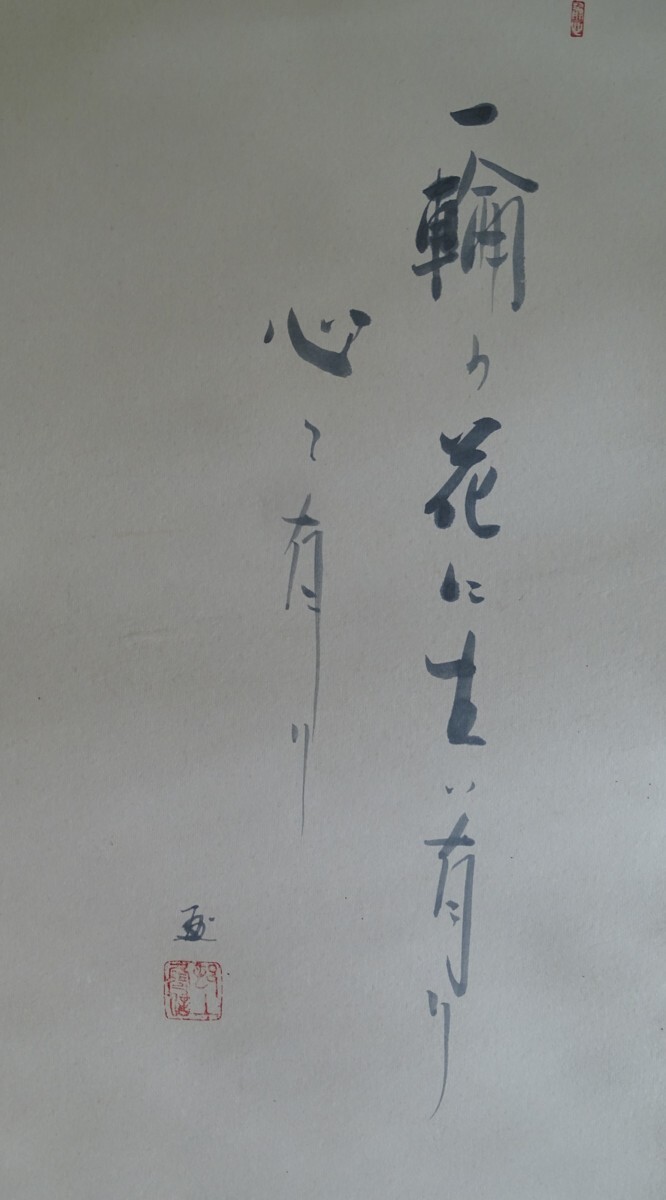 一輪の花に生い有り
心こ有り